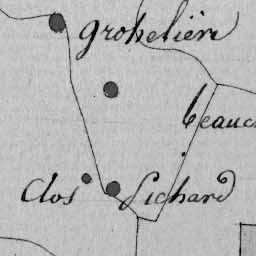 groseliere
beauc
Clos Sichard